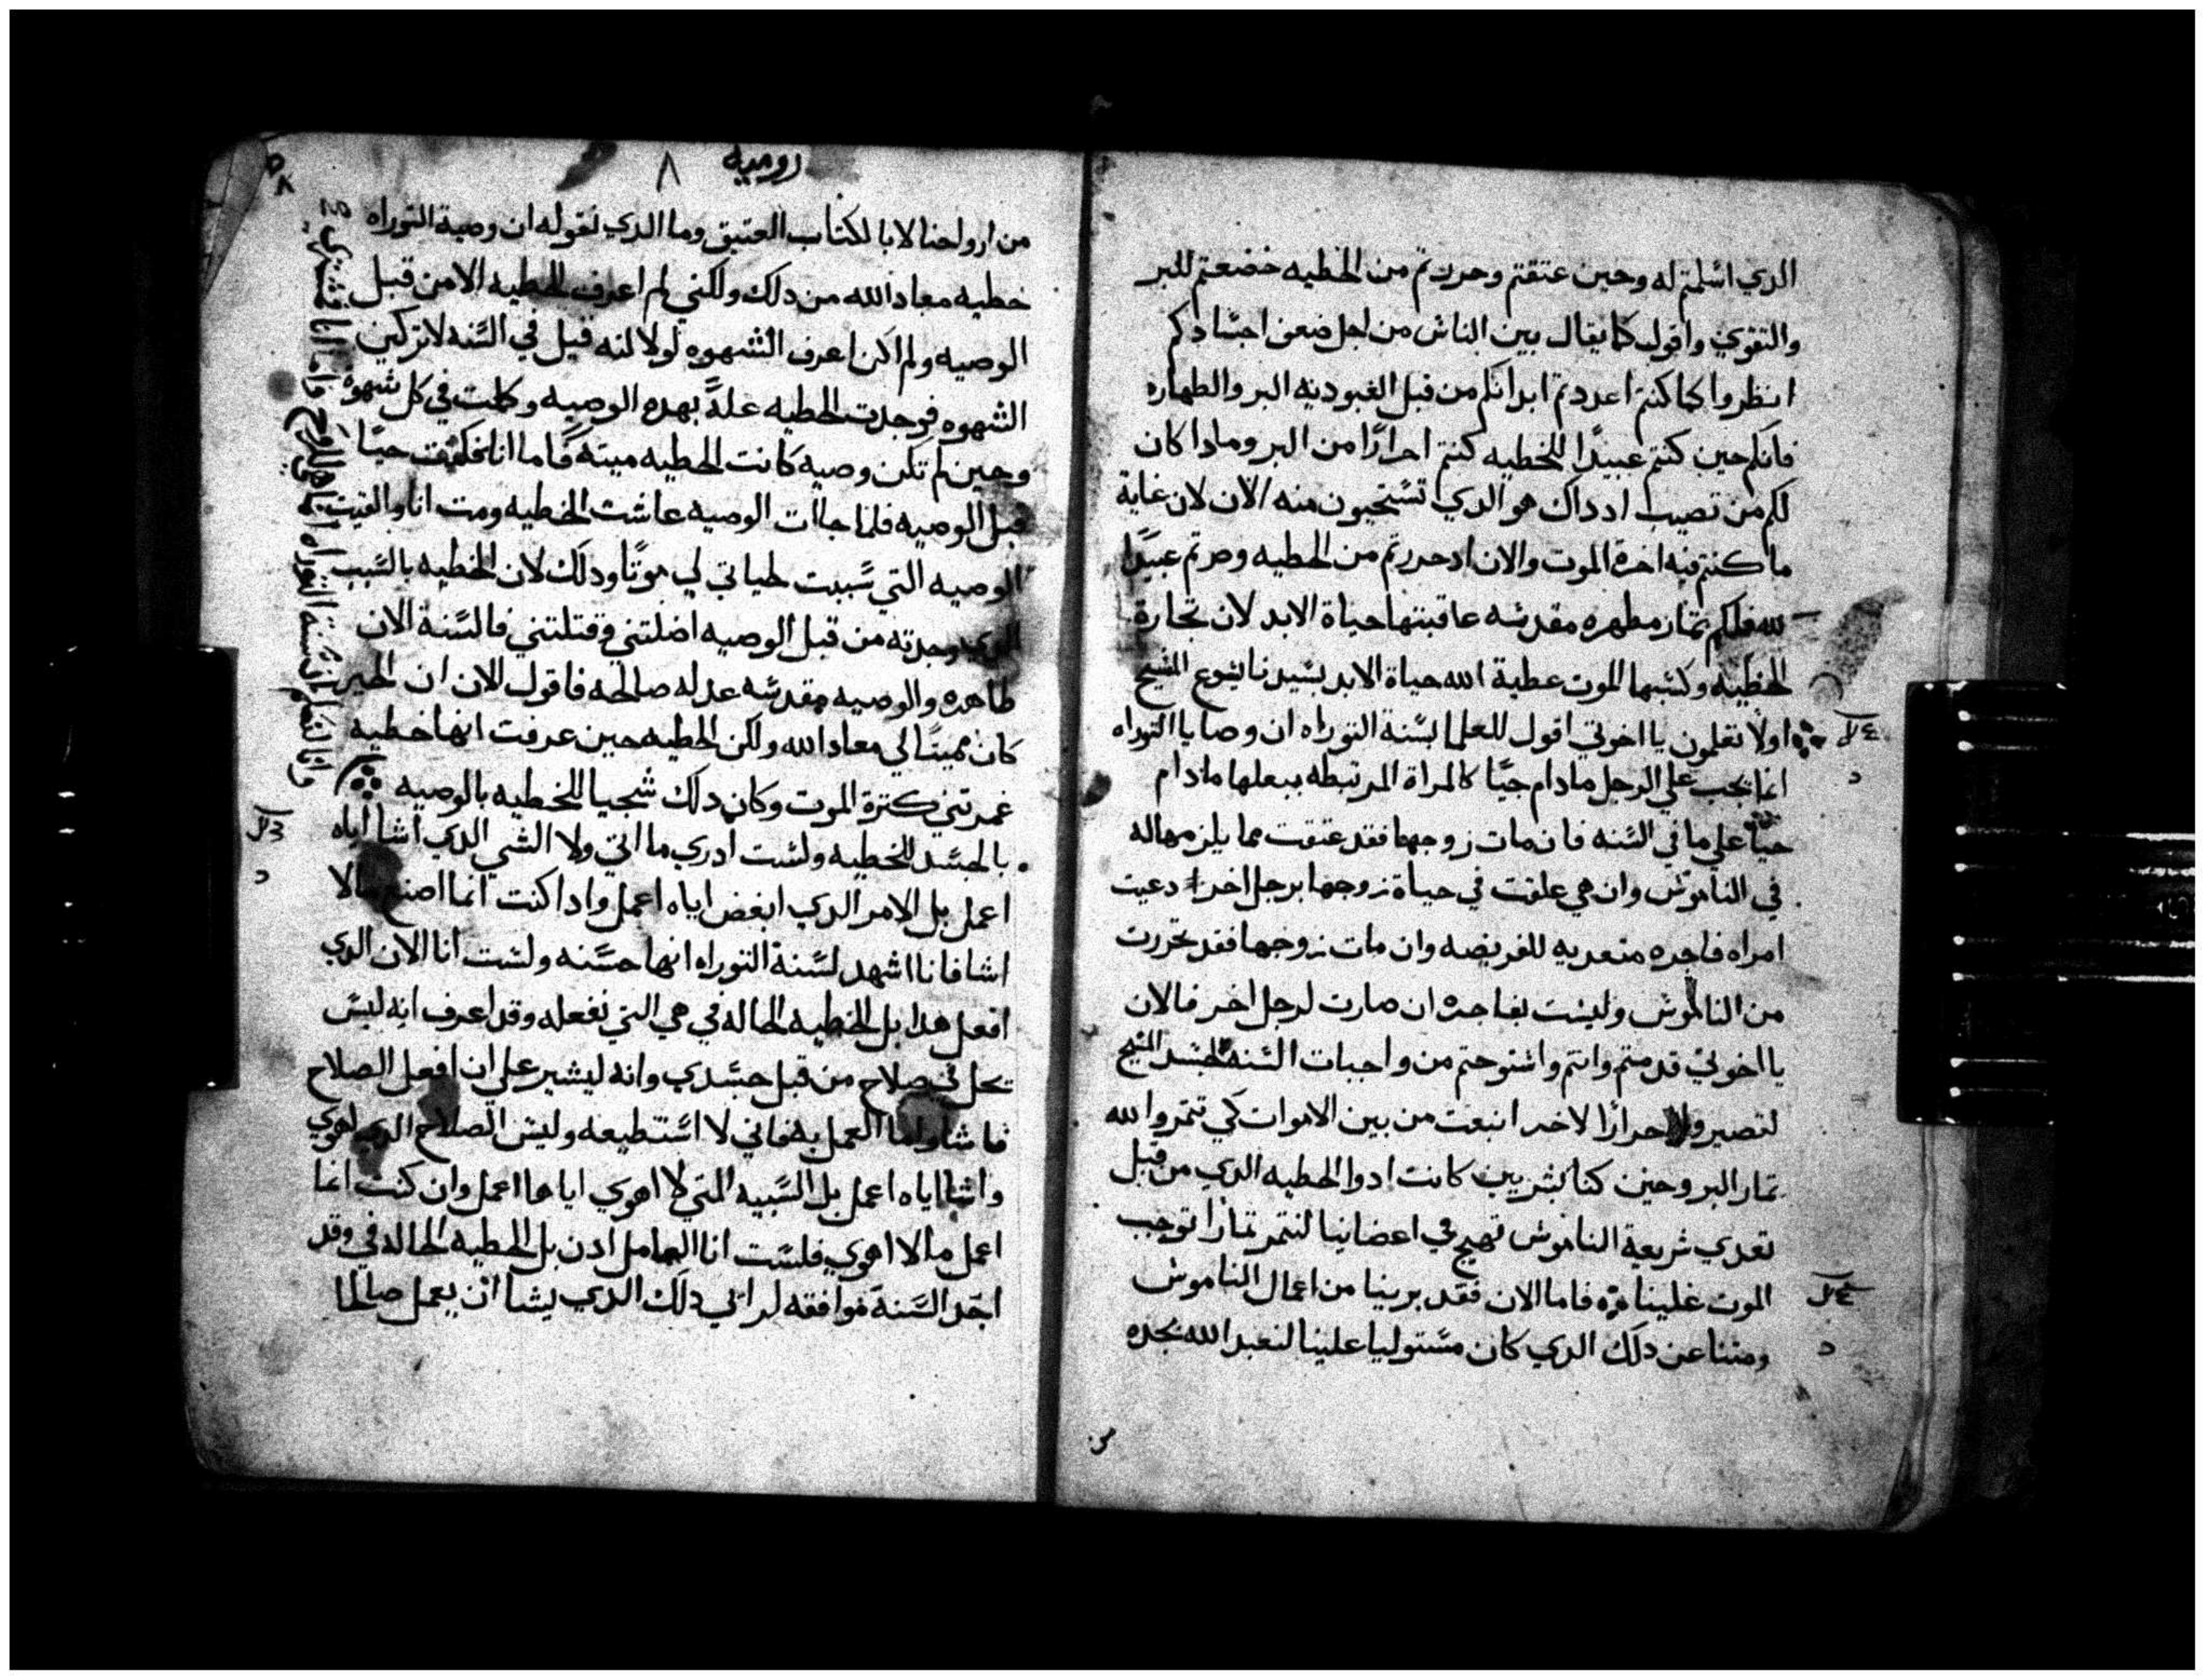 الدي اسلمتم له وحين عتقتم وحررتم من الخطيه خضعتم للبر
والتقوي واقول كما يقال بين الناس من اجل ضعف اجسادكم
انظروا كما كنتم اعددتم ابدانكم من قبل العبودية البر والطهاره
فانكم حين كنتم عبيدًا للخطيه كنتم احرارًا من البر ومادا كان
لكم من نصيب اد داك هو الدي تستحيون منه الان لان غاية
ما كنتم فيه اخرة الموت والان اد حررتم من الخطيه وصرتم عبيدًا
لله فلكم ثمار مطهره مقدسه عاقبتها حياة الابد لان تجارة
الخطية وكسبها الموت عطية الله حياة الابد بسيدنا يسوع المسيح
اولا تعلمون يا اخوتي اقول للعلما بسنة التوراه ان وصايا التوراه
انما تجب علي الرجل ما دام حيًا كالمراة المرتبطه ببعلها ما دام
حيًا علي ما في السنه فان مات زوجها فقد عتقت مما يلزمها له
في الناموس وان هي علقت في حياة زوجها برجل اخر دعيت
امراه فاجره متعديه للفريضه وان مات زوجها فقد تحررت
من الناموس وليست بفاجره ان صارت لرجل اخر فالان
يا اخوتي قد متم وانتم واسترحتم من واجبات السنة بجسد المسيح
لتصيروا احرارًا لاخر انبعت من بين الاموات كي تتمروا لله
تمار البر وحين كنا بشريين كانت ادوا الخطيه الدي من قبل
تعدي شريعة الناموس تهيج في اعضاينا لنتمر تمارًا توجب
الموت علينا فاما الان فقد برينا من اعمال الناموس
ومتنا عن دلك الدي كان مستوليا علينا لنعبد الله بجده
روميه
٨
من ارواحنا لا بالكتاب العتيق وما الدي نقوله ان وصية التوراه
خطيه معاد الله من دلك ولكني لم اعرف الخطيه الا من قبل
الوصيه ولم اكن اعرف الشهوه لولا انه قيل في السنه لا تركبن
الشهوه فوجدت الخطيه علةً بهده الوصيه وكملت في كل شهوه
وحين لم تكن وصيه كانت الخطيه ميته فاما انا فكنت حيًا
قبل الوصيه فلما جاات الوصيه عاشت الخطيه ومت انا والفيت
الوصيه التي سببت لحياتي لي موتًا ودلك لان الخطيه بالسبب
الدي وجدته من قبل الوصيه اضلتني وقتلتني فالسنة الان
طاهره والوصيه مقدسه عدله صالحه فاقول الان ان الخير
كان مميتًا لي معاد الله ولكن الخطيه حين عرفت انها خطيه
غمرتني كترة الموت وكان دلك شجيا للخطيه بالوصيه
بالجسد للخطيه ولست ادري ما اتي ولا الشي الدي اشا اياه
اعمل بل الامر الدي ابغض اياه اعمل وادا كنت انما اصنع ما لا
اشا فانا اشهد لسنة التوراه انها حسنه ولست انا الان الدي
افعل هدا بل الخطيه الحاله في هي التي تفعله وقد اعرف انه ليس
يحل في صلاح من قبل جسدي وانه ليشير علي ان افعل الصلاح
فاشا واما العمل به فاني لا استطيعه وليس الصلاح الدي اهوي
واشا اياه اعمل بل السييه التي لا اهوي اياها اعمل وان كنت انما
اعمل ما لا اهوي فلست انا العامل ادن بل الخطيه الحاله في وقد
اجد السنة موافقه لراي دلك الدي يشا ان يعمل صالحا
وانا نعلم ان سنة التوراه انما هي للروح واما انا فبشري